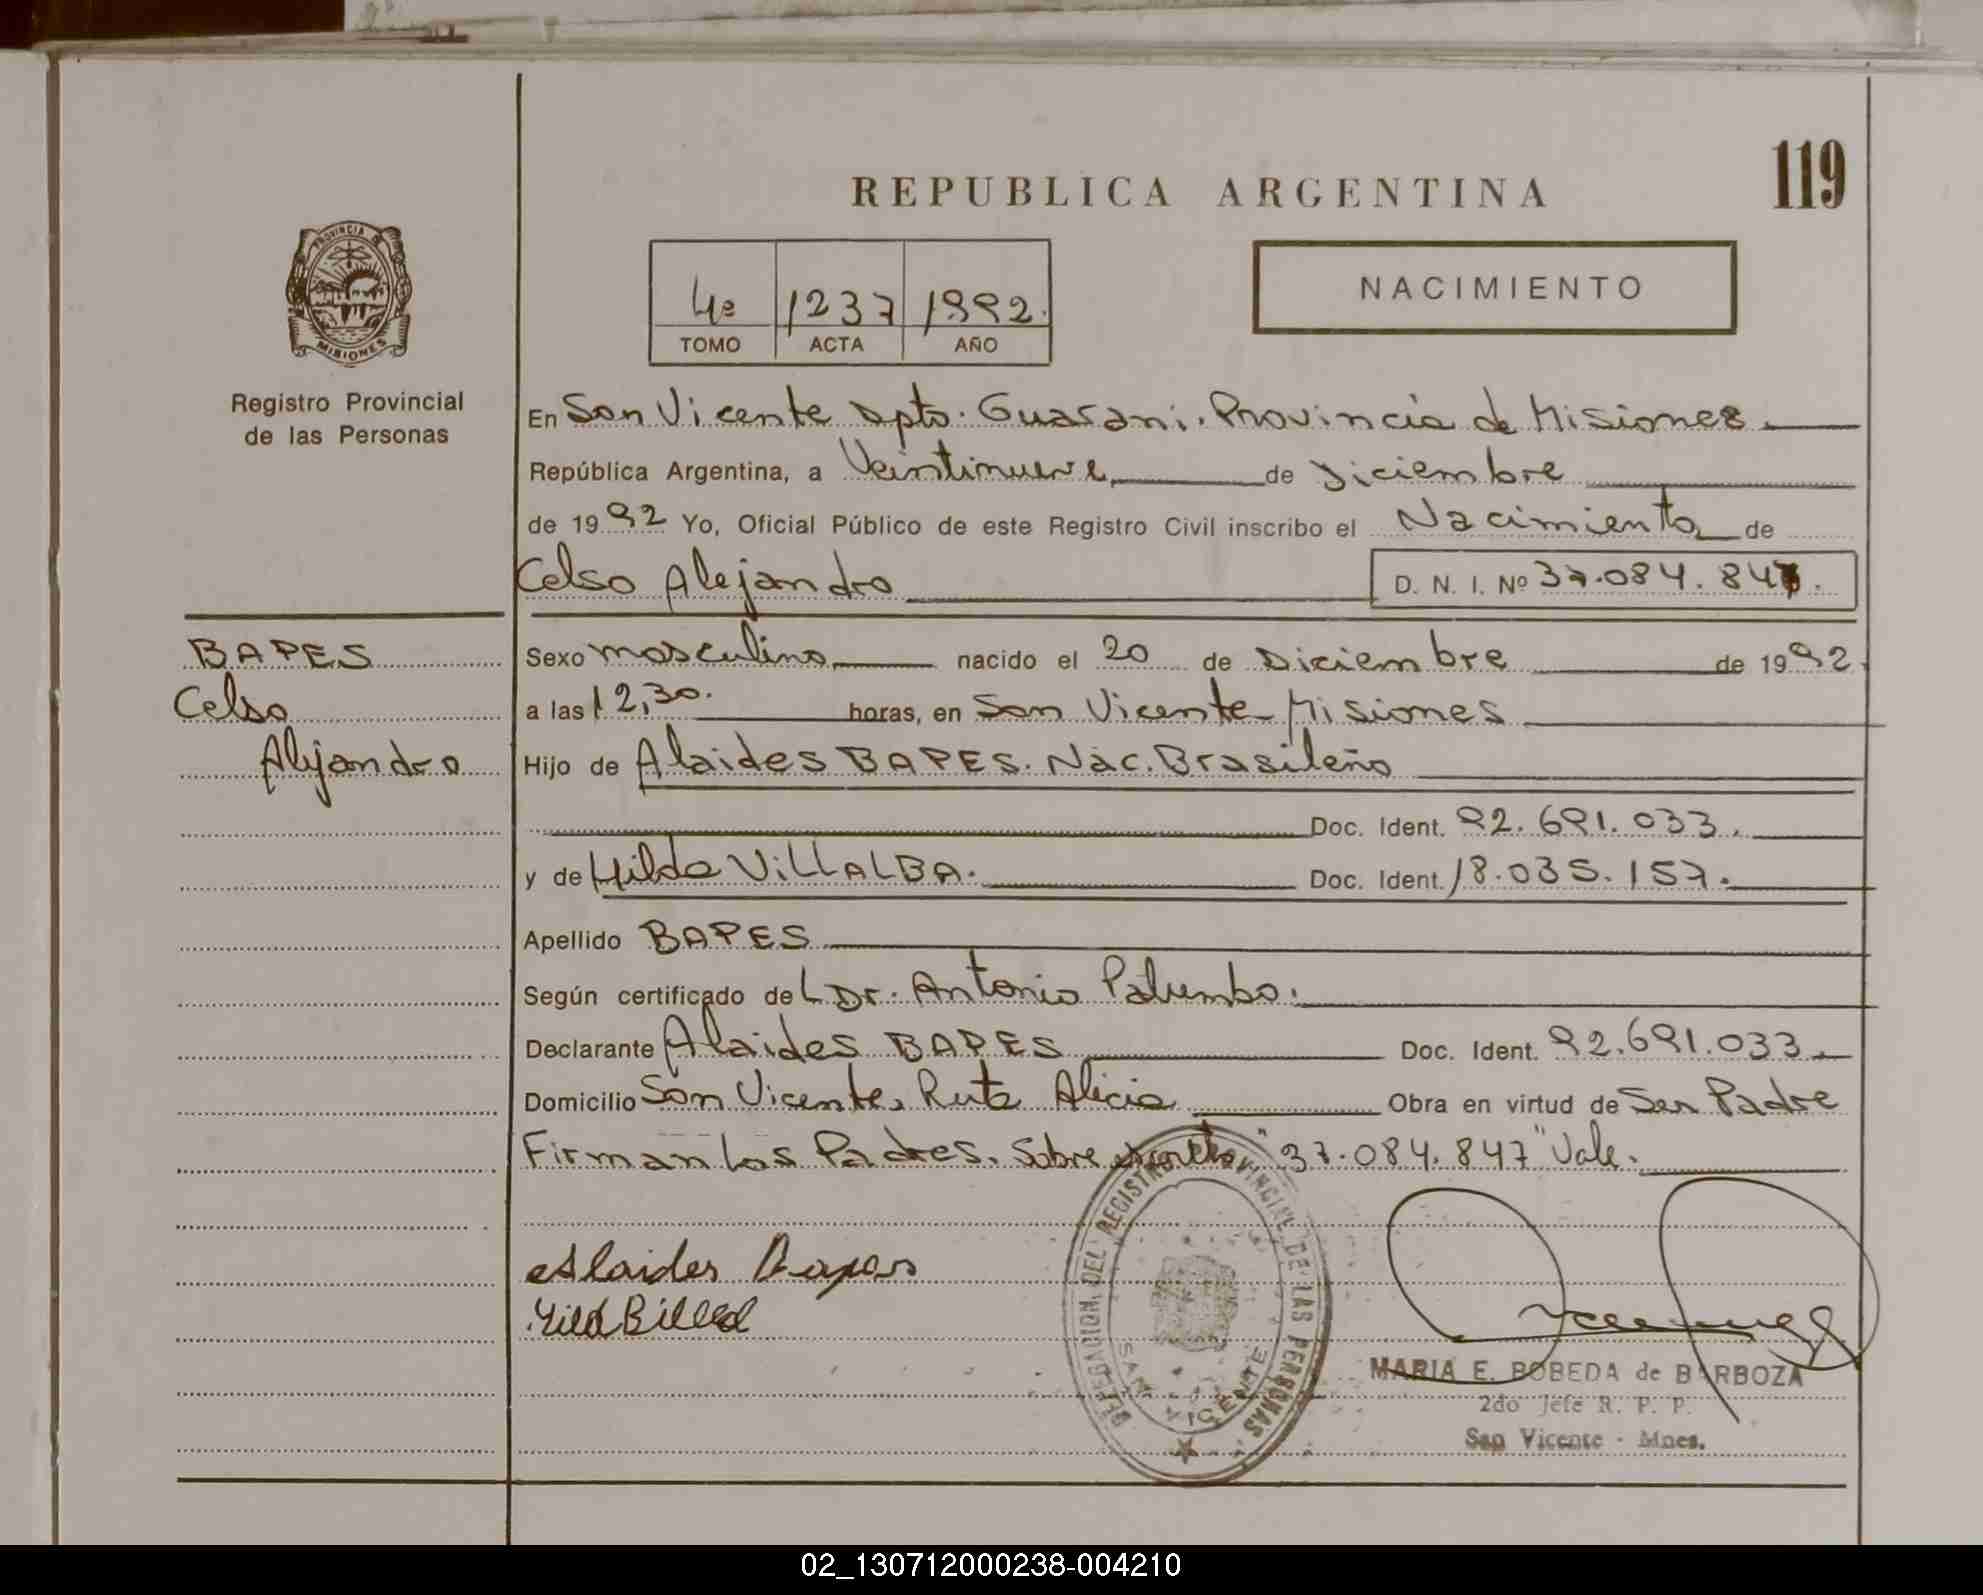 119
REPUBLICA ARGENTINA
PROVINCIA DE
MISIONES
Registro Provincial
de las Personas
4º 1237 1992.
TOMO ACTA AÑO
NACIMIENTO
En San Vicente Dpto. Guarani. Provincia de Misiones
República Argentina, a Veintinueve de Diciembre
de 1992 Yo, Oficial Público de este Registro Civil inscribo el Nacimiento de
Celso Alejandro D. N. I. Nº 37.084.847.
BAPES
Celso
Alejandro
Sexo masculino nacido el 20 de Diciembre de 1992.
a las 12,30. horas, en San Vicente Misiones
Hijo de Alaides BAPES. Nac. Brasileño
Doc. Ident. 92.691.033.
y de Hilda VILLALBA. Doc. Ident. 18.035.157.
Apellido BAPES
Según certificado del Dr. Antonio Palumbo.
Declarante Alaides BAPES Doc. Ident. 92.691.033.
Domicilio San Vicente, Ruta Alicia Obra en virtud de Ser Padre
Firman los Padres. Sobre "37.084.847" Vale.
Alaides Bapes
DELEGACION DEL REGISTRO PROVINCIAL DE LAS PERSONAS
SAN VICENTE
MARIA E. BOBEDA de BARBOZA
2do Jefe R. P. P.
San Vicente - Mnes.
02_130712000238-004210